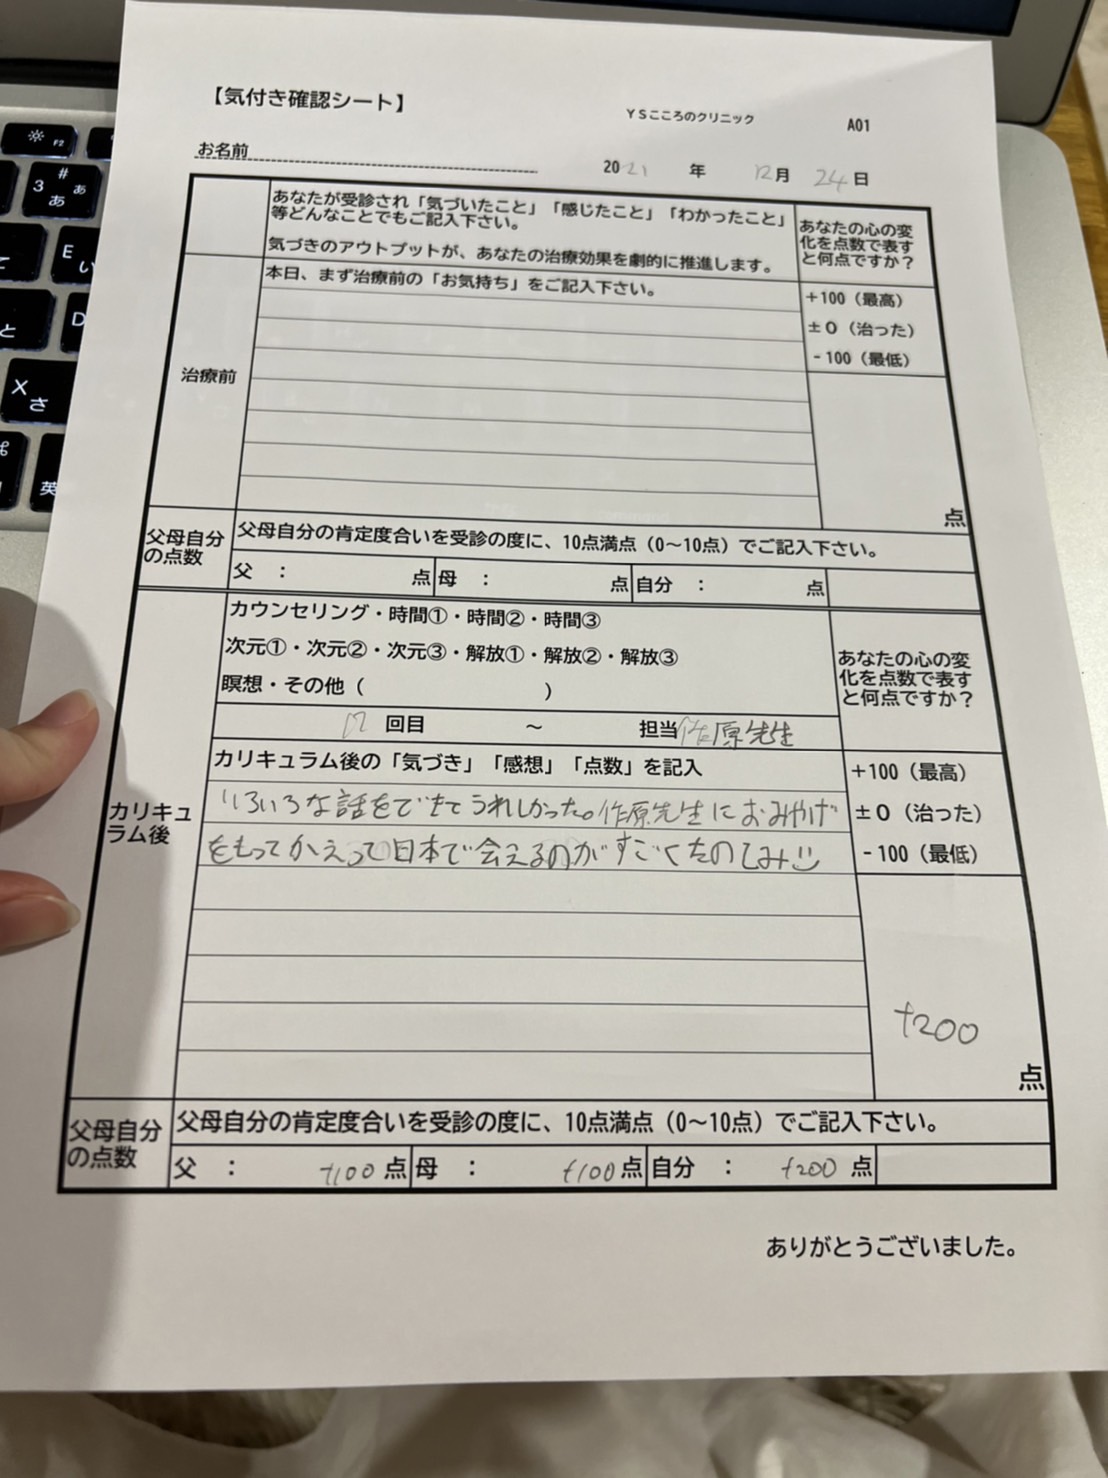 【気付き確認シート】
YSこころのクリニック
A01
お名前
2021 年 12月 24日
あなたが受診され「気づいたこと」「感じたこと」「わかったこと」
等どんなことでもご記入下さい。
気づきのアウトプットが、あなたの治療効果を劇的に推進します。
あなたの心の変
化を点数で表す
と何点ですか？
治療前
本日、まず治療前の「お気持ち」をご記入下さい。
+100（最高）
±0（治った）
-100（最低）
点
父母自分
の点数
父母自分の肯定度合いを受診の度に、10点満点（0〜10点）でご記入下さい。
父 ： 点 母 ： 点 自分 ： 点
カリキュ
ラム後
カウンセリング・時間①・時間②・時間③
次元①・次元②・次元③・解放①・解放②・解放③
瞑想・その他（ ）
あなたの心の変
化を点数で表す
と何点ですか？
回目 〜 担当 作原先生
カリキュラム後の「気づき」「感想」「点数」を記入
いろいろな話をできてうれしかった。作原先生におみやげ
をもってかえって日本で会えるのがすごくたのしみ
+100（最高）
±0（治った）
-100（最低）
+200
点
父母自分
の点数
父母自分の肯定度合いを受診の度に、10点満点（0〜10点）でご記入下さい。
父 ： +100 点 母 ： +100 点 自分 ： +200 点
ありがとうございました。
# F2
3 あ ぁ
あ
E い
て
と
D
X さ
英